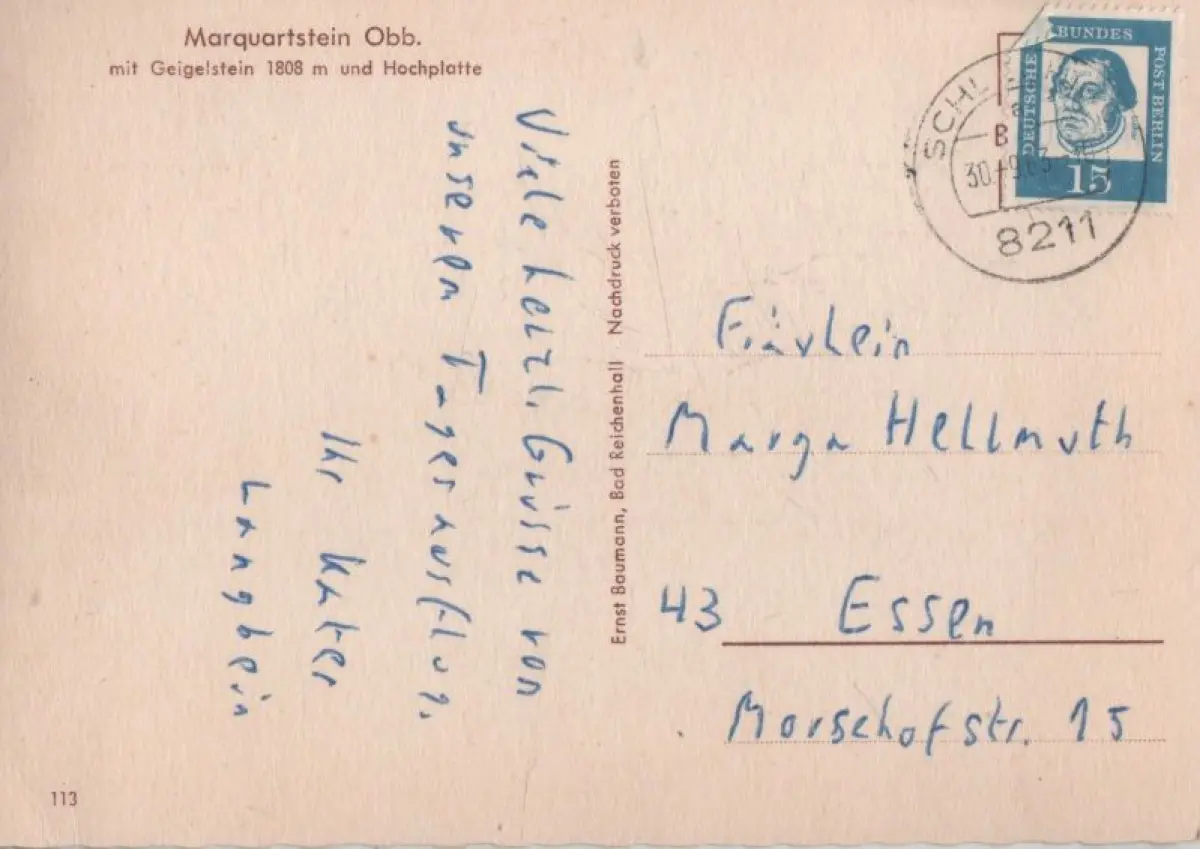 Marquartstein Obb.
mit Geigelstein 1808 m und Hochplatte
Viele herzl. Grüsse von
unserem Tagesausflug.
Ihr Kater
Langbein
Ernst Baumann, Bad Reichenhall · Nachdruck verboten
DEUTSCHE BUNDES POST BERLIN
15
30. 9.63
8211
Fräulein
Marga Hellmuth
43 Essen
Morschofstr. 15
113